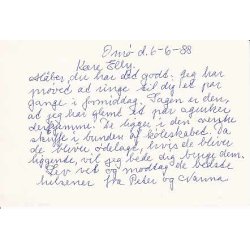 Omø d. 6-6-88
Kære Elly.
Håber, du har det godt. Jeg har
prøvet at ringe til dig et par
gange i formiddag. Sagen er den,
at jeg har glemt et par agurker
derhjemme. De ligger i den øverste
skuffe i bunden af køleskabet. Da
de bliver ødelagt, hvis de bliver
liggende, vil jeg bede dig bruge dem.
Lev vel og modtag de bedste
hilsener fra Peter og Nanna